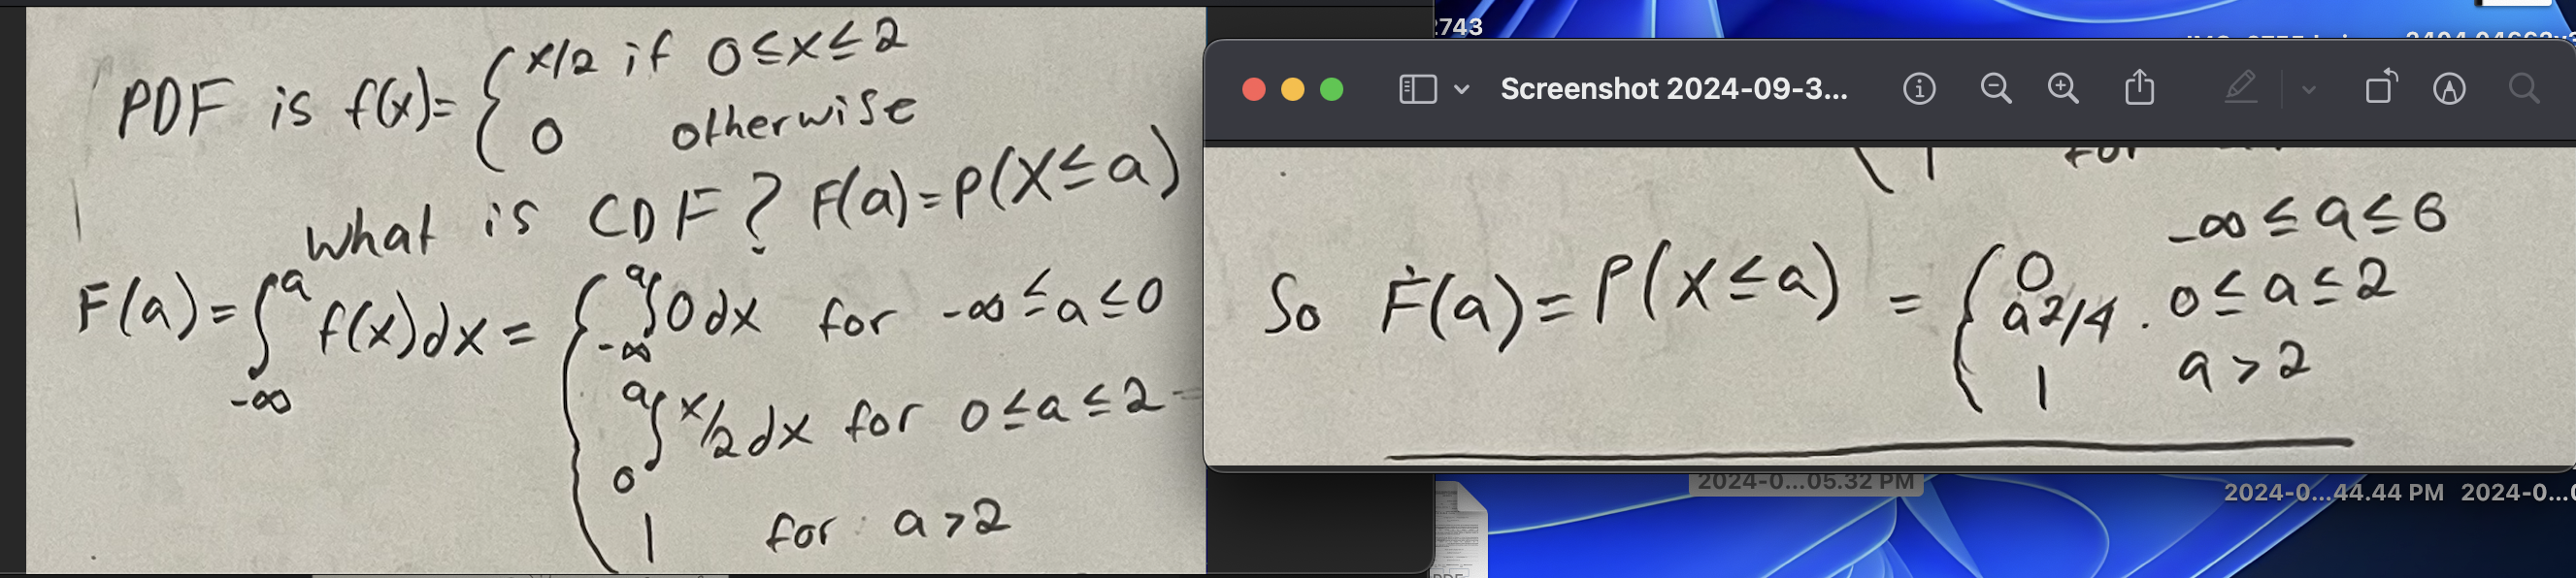 PDF is f(x)= { x/2 if 0≤x≤2
0 otherwise
what is CDF? F(a)=P(X≤a)
F(a)=∫_{-∞}^{a} f(x)dx = { ∫_{-∞}^{a} 0 dx for -∞≤a≤0
∫_{0}^{a} x/2 dx for 0≤a≤2 =
1 for a>2
2743
Screenshot 2024-09-3...
1 for
-∞≤a≤6
So F(a)=P(X≤a) = { 0
a^2/4 . 0≤a≤2
1 a>2
2024-0...05.32 PM
2024-0...44.44 PM 2024-0...
PDF